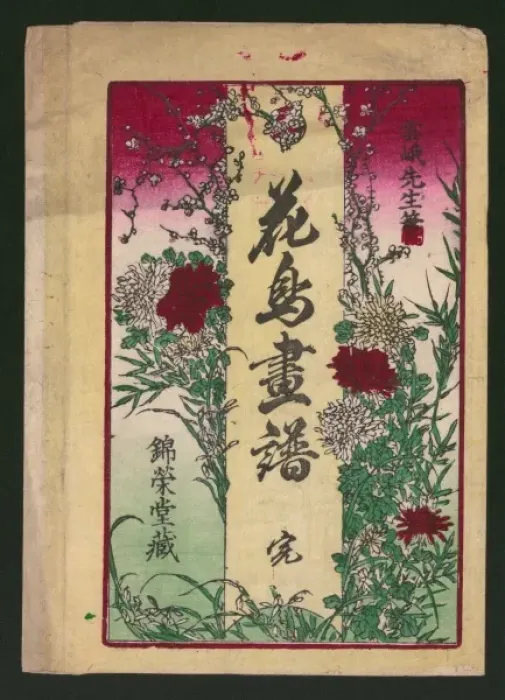 先生筆
花鳥畫譜 完
錦榮堂藏